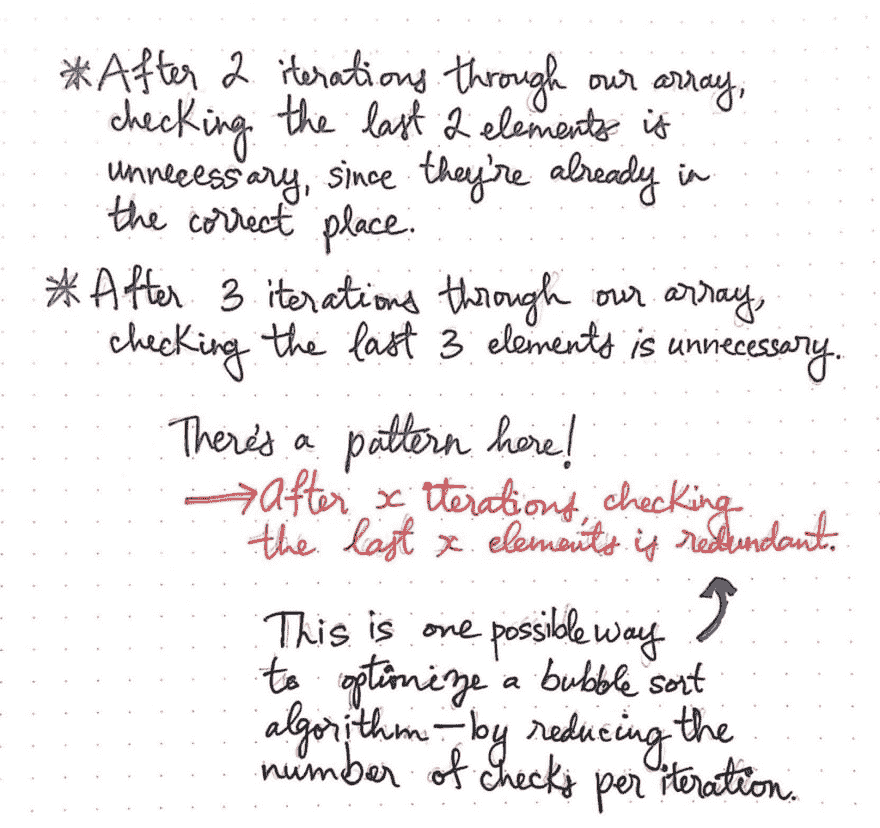 *After 2 iterations through our array,
checking the last 2 elements is
unnecessary, since they're already in
the correct place.
*After 3 iterations through our array,
checking the last 3 elements is unnecessary.
There's a pattern here!
→After x iterations, checking
the last x elements is redundant.
This is one possible way
to optimize a bubble sort
algorithm—by reducing the
number of checks per iteration.